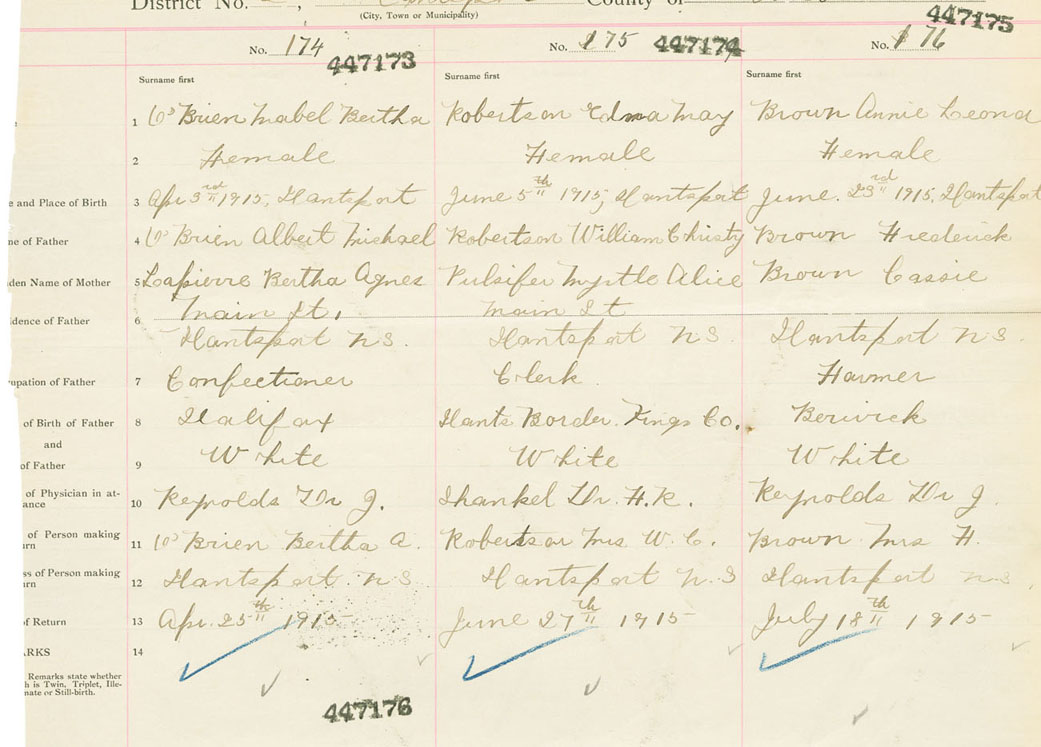 District No.
County of
(City, Town or Municipality)
No. 174
447173
No. 175
447174
No. 176
447175
Surname first
Surname first
Surname first
1 O'Brien Mabel Bertha
Robertson Edma May
Brown Annie Leona
2 Female
Female
Female
e and Place of Birth 3 Apr 3rd 1915, Hantsport
June 5th 1915, Hantsport
June. 23rd 1915, Hantsport
ne of Father 4 O'Brien Albert Michael
Robertson William Christy
Brown Frederick
den Name of Mother 5 Lapierre Bertha Agnes
Pulsifer Myrtle Alice
Brown Cassie
idence of Father 6 Main St.
Hantsport N S.
Main St
Hantsport N S.
Hantsport N S.
upation of Father 7 Confectioner
Clerk
Farmer
of Birth of Father 8 Halifax
Hants Border. Kings Co.
Berwick
and
of Father 9 White
White
White
of Physician in at-
ance 10 Reynolds Dr J.
Shankel Dr. F. R.
Reynolds Dr J.
of Person making
urn 11 O'Brien Bertha A.
Robertson Mrs W. C.
Brown Mrs F.
ss of Person making
urn 12 Hantsport. N S
Hantsport N. S
Hantsport N S
of Return 13 Apr. 25th 1915
June 27th 1915
July 18th 1915
ARKS 14
Remarks state whether
h is Twin, Triplet, Ille-
nate or Still-birth.
447176